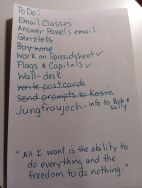 To Do:
Email Classes
Answer Powels email
Quizlets
Buy wine
Work on Spreadsheet ✓
Flags & Capitals ✓
Wall-desk
Write postcards
Send prompts to Kasta
Jungfraujoch - info to Bob &
Sally
"All I want is the ability to
do everything and the
freedom to do nothing."